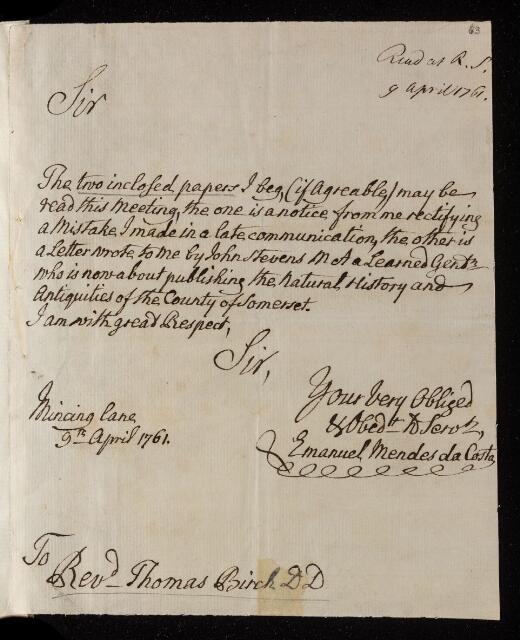 63
Read at R. S.
9 April 1761.
Sir
The two inclosed papers I beg, (if Agreable) may be
read this Meeting, the one is a notice from me rectifying
a Mistake I made in a late communication, the other is
a Letter wrote to me by John Stevens M A a Learned Gentn
who is now about publishing the Natural History and
Antiquities of the County of Somerset.
I am with great Respect,
Sir,
Your Very Obliged
& Obedtt H Servtt,
Emanuel Mendes da Costa
Mincing Lane
9th April 1761.
To
Revd Thomas Birch DD